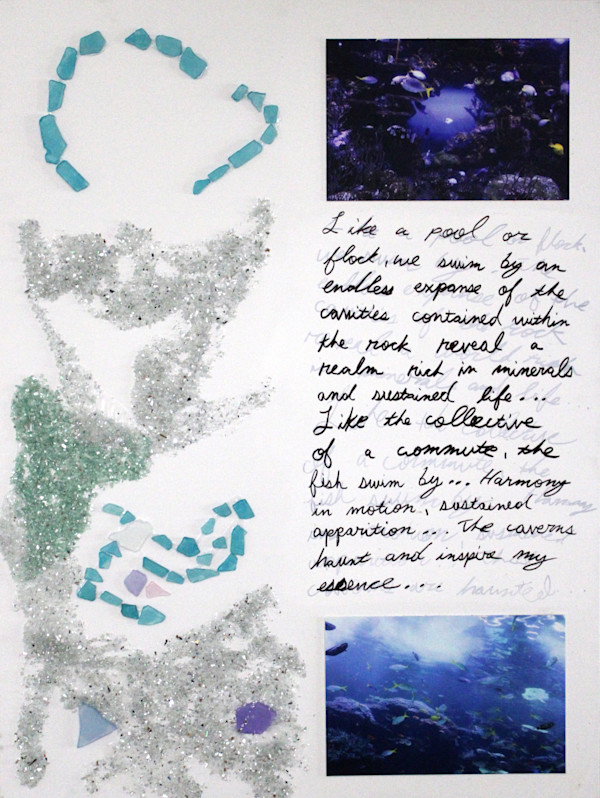 Like a pool or
flock, we swim by an
endless expanse of the
cavities contained within
the rock reveal a
realm rich in minerals
and sustained life...
Like the collective
of a commute, the
fish swim by... Harmony
in motion, sustained
apparition... The caverns
haunt and inspire my
essence....